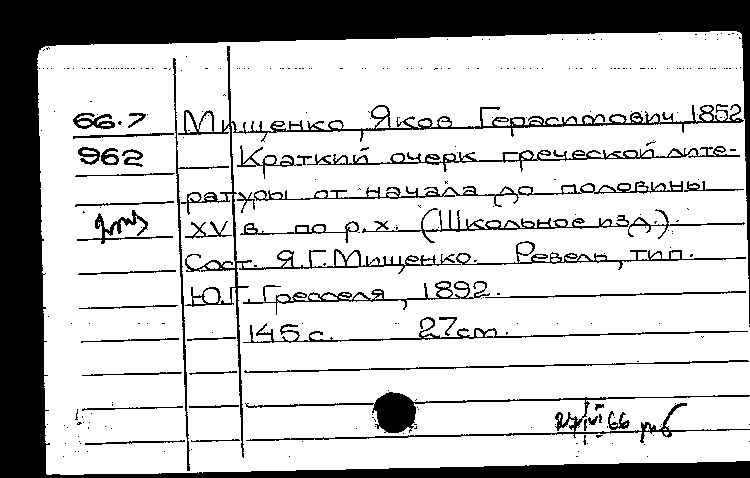 66.7 Мищенко, Яков Герасимович, 1852
962 Краткий очерк греческой лите-
ратуры от начала до половины
XV в. по р.х. (Школьное изд.).
Сост. Я.Г.Мищенко. Ревель, тип.
Ю.Г. Гресселя, 1892.
145 с. 27 см.
27/VI 66